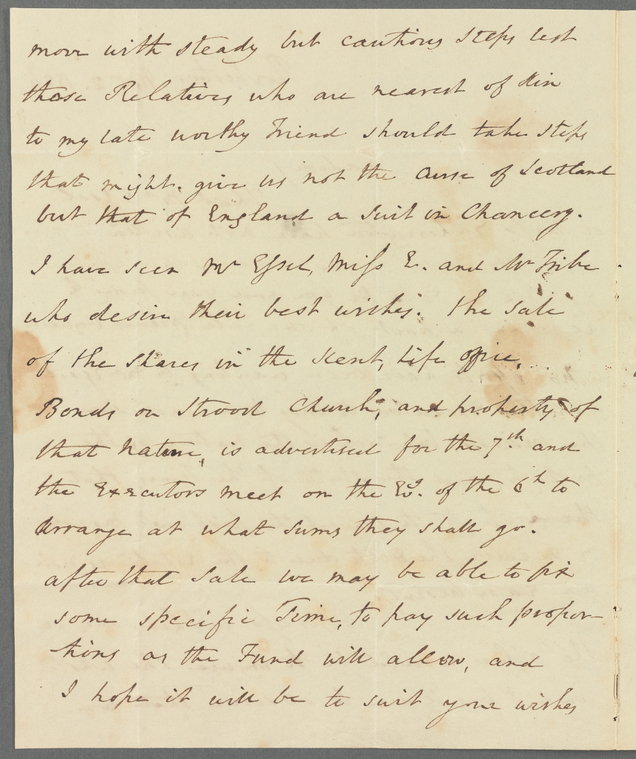 move with steady but cautious steps lest
those Relatives who are nearest of Kin
to my late worthy Friend should take steps
that might give us not the Curse of Scotland
but that of England a Suit in Chancery.
I have seen Mr Essel, Miss E. and Mr Tribe
who desire their best wishes. The Sale
of the Shares in the Kent, Life office,
Bonds on Strood Church, and property of
that Nature, is advertised for the 7th and
the Executors meet on the of the 6th to
Arrange at what Sums they shall go.
after that Sale we may be able to fix
some specific Time, to pay such propor-
tions as the Fund will allow, and
I hope it will be to suit your wishes